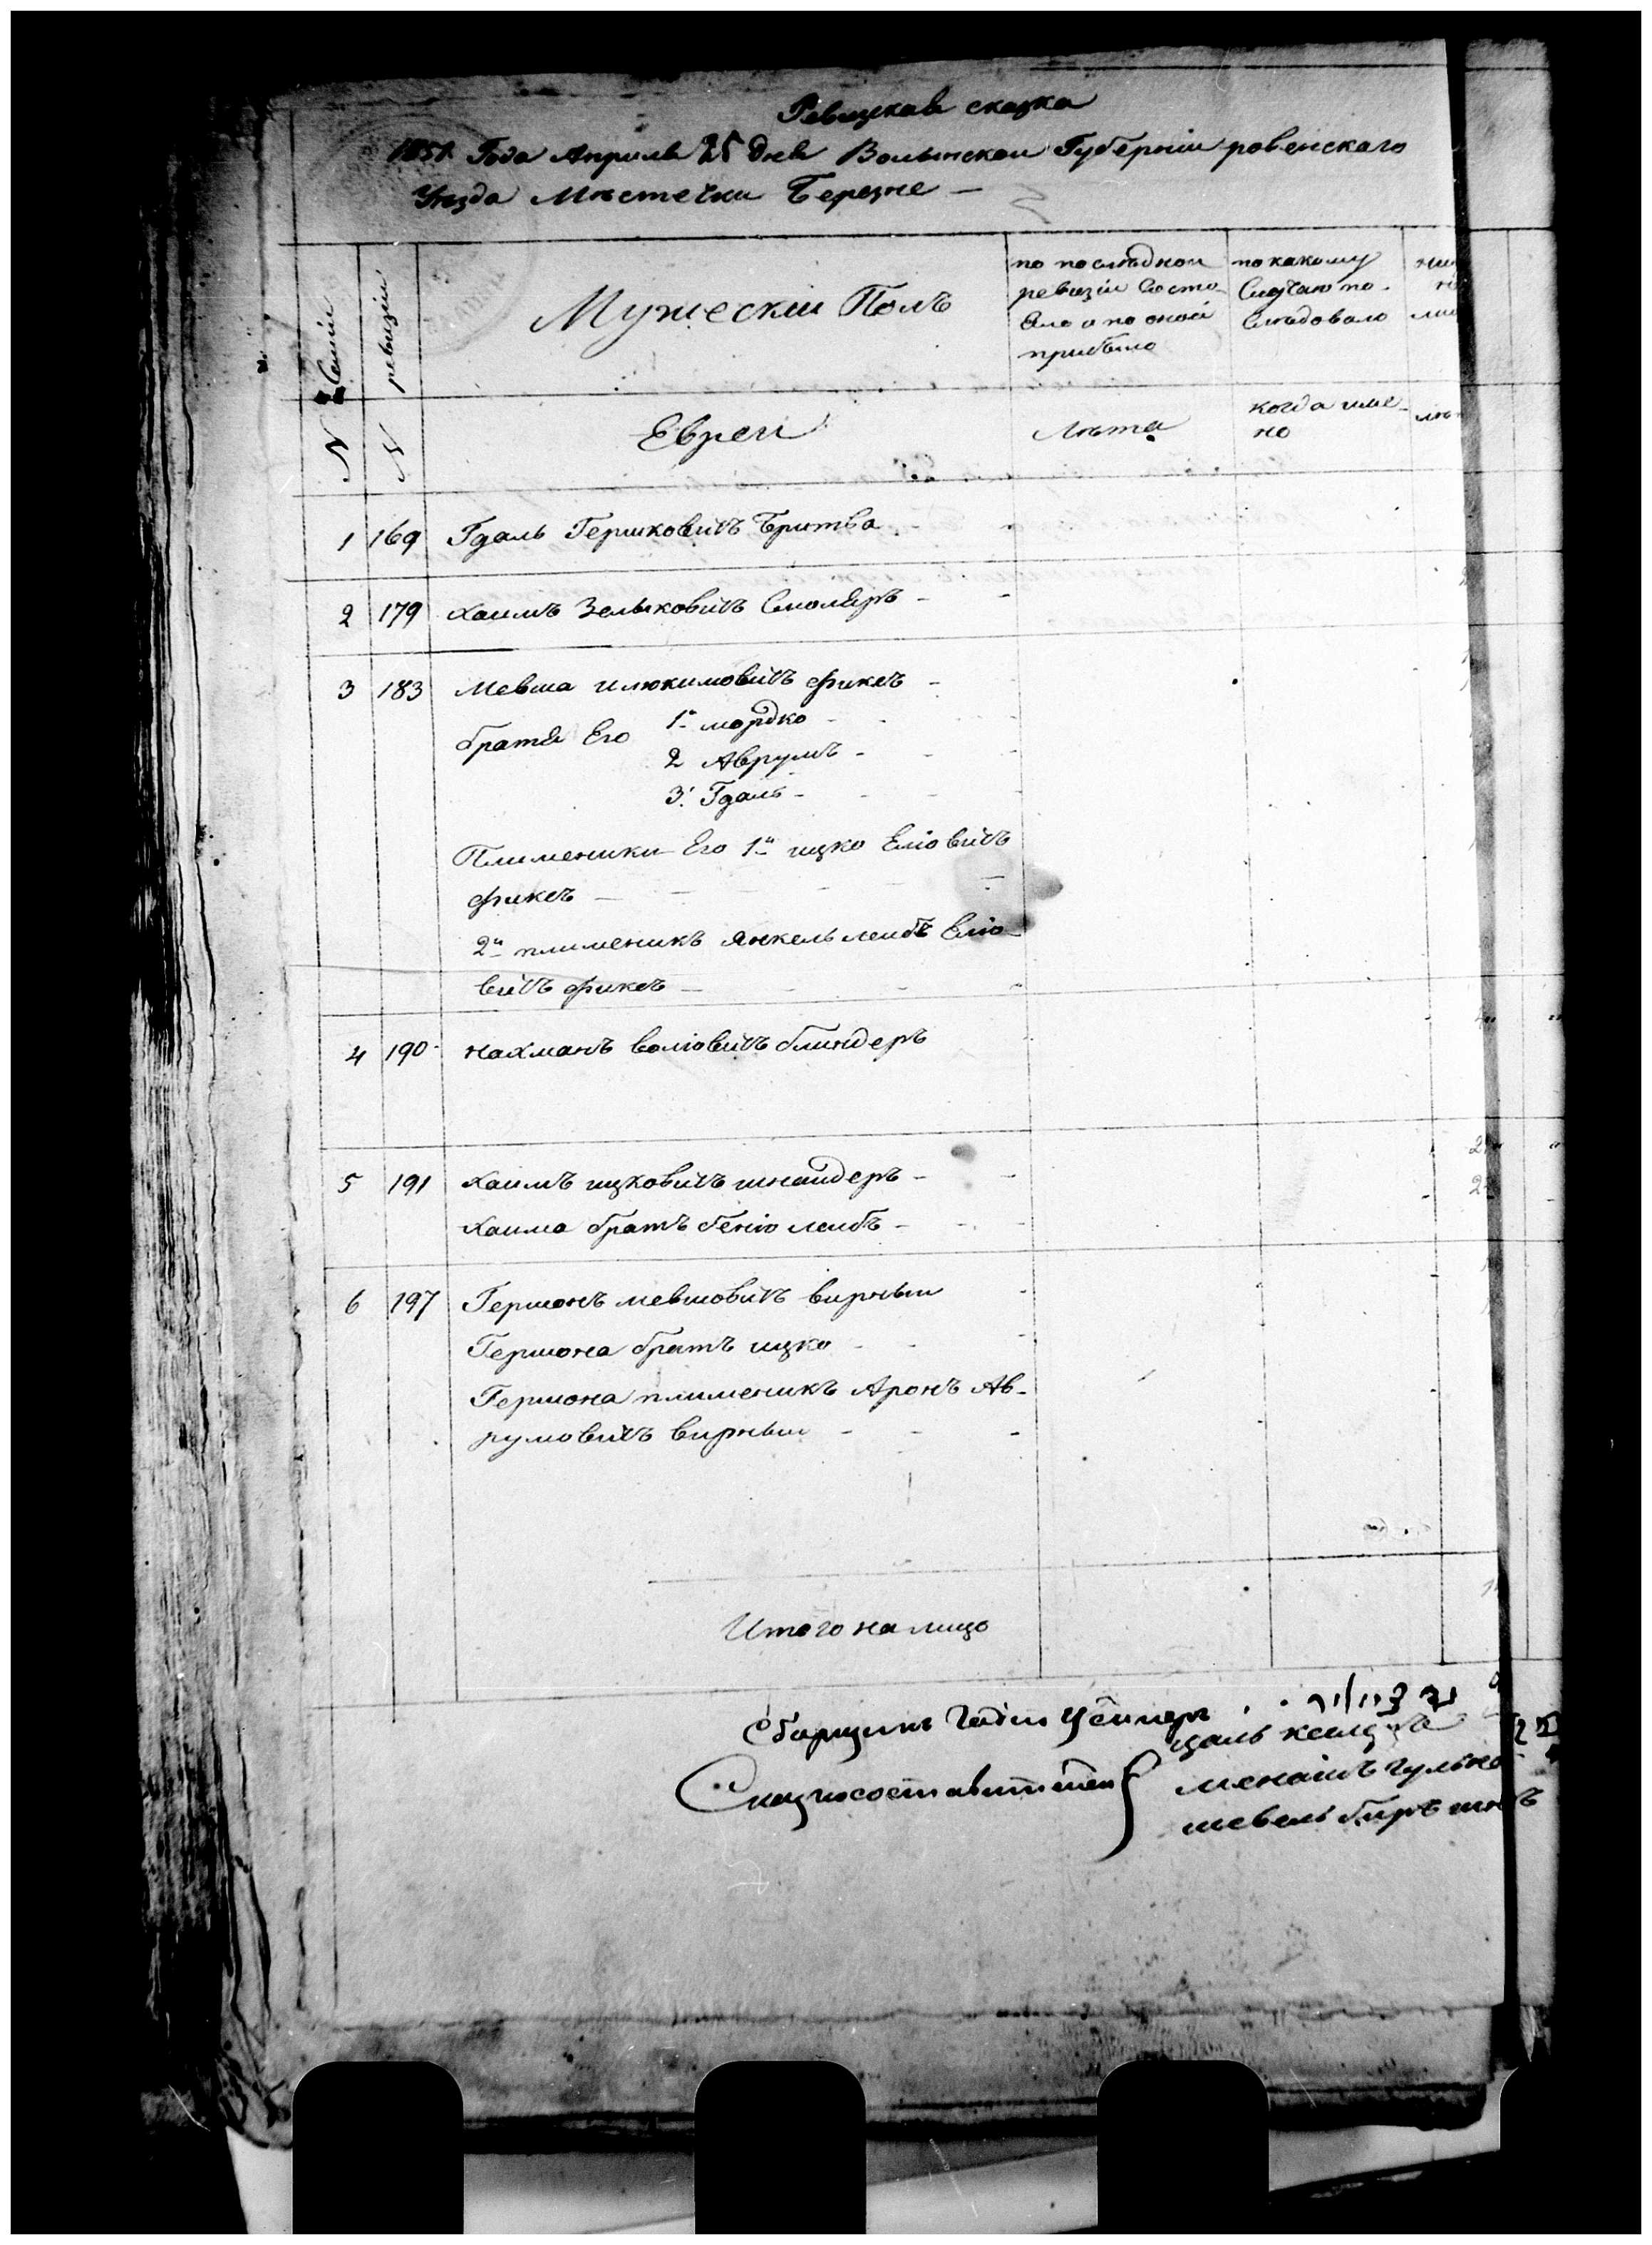 Ревизкая сказка
1851 Года Апреля 25 дня Волынской Губерніи ровенскаго
Уезда Местечка Березне —
N Семіи
N ревизіи
Мужескій Полъ
по последной
ревизіи Состо
Яло и по оной
прибыло
по какому
Случаю по-
Следовало
Евреи
Лета
когда име-
но
1 169 Гдаль Гершковичъ Бритва
2 179 Хаимъ Зельковичъ Смоляръ -
3 183 Мевша илюкимовичъ фиксъ -
братя Его 1й мордко -
2 Аврумъ -
3. Гдаль -
Племеники Его 1й ицко Еліовичъ
фиксъ —
2й племеникъ Янкель леибъ Еліо
вичъ фиксъ —
4 190 нахманъ воліовичъ блиндеръ
5 191 Хаимъ ицковичъ шнаидеръ -
Хаима братъ беніо леибъ -
6 197 Гершонъ мевшовичъ вирныи
Гершона братъ ицко -
Гершона племеникъ Аронъ Ав-
румовичъ вирныи -
Итого на лицо
Сборщикъ
Сказкосоставители
менашъ гулько
шевель